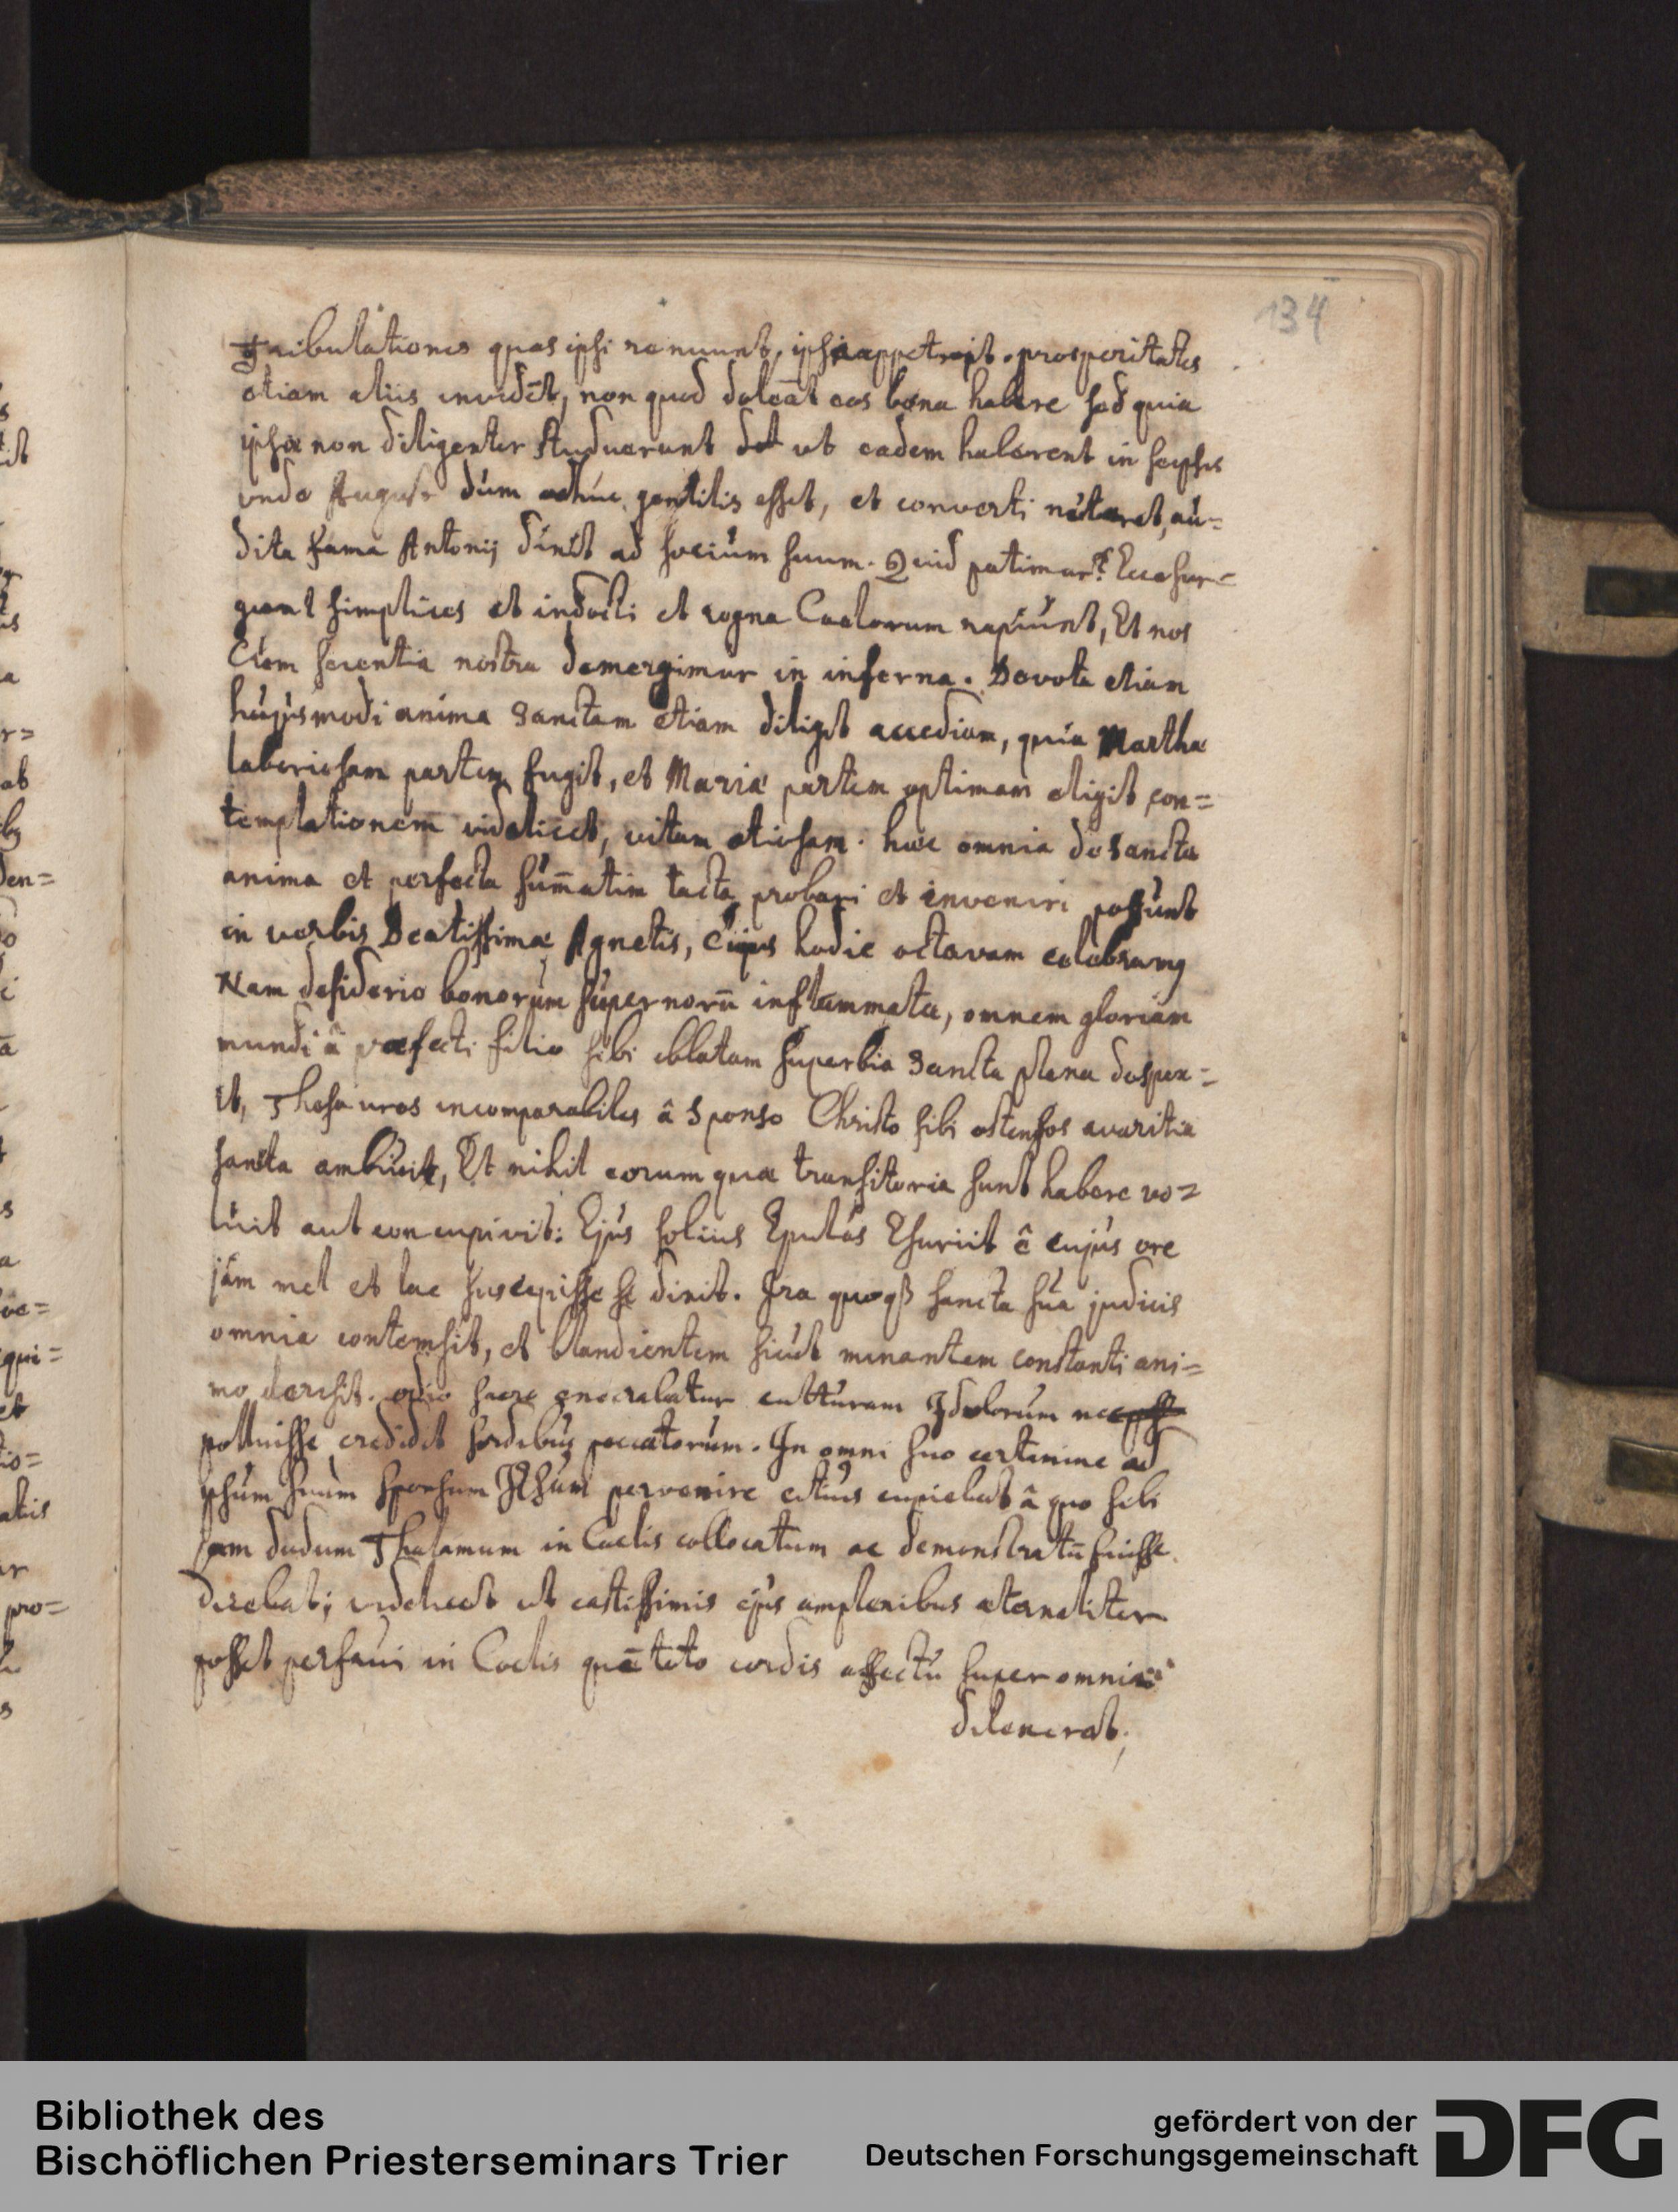 134
Tribulationes quas ipsi renuunt, ipsa appetivit. prosperitates
etiam aliis invidet, non quod doleāt eos bona habere sed quia
ipsæ non diligenter studuerunt ut eadem haberent in seipsis
unde August dum adhuc gentilis esset, et converti nitaret, au=
dita fama Antonij dixit ad socium suum. Quid patimur? Ecce sur=
gunt simplices et indocti et regna Caelorum rapiunt, Et nos
Cum scientia nostra demergimur in inferna. Devota etiam
hujusmodi anima Sanctam etiam diligit accediam, quia Marthæ
laboriosam partem fugit, et Mariæ partem optimam eligit con=
templationem videlicet, vitam otiosam. hæc omnia de Sancta
anima et perfecta sum̄atim tacta probari et inveniri possunt
in verbis Beatissimæ Agnetis, Cujus hodie octavam celebramus
Nam desiderio bonorum supernorū inflammata, omnem gloriam
mundi â præfecti filio sibi oblatam superbia Sancta plena despex=
it, Thesauros incomparabiles â Sponso Christo sibi ostensos avaritia
sancta ambivit, Et nihil eorum quæ transitoria sunt habere vo=
luit aut concupivit: Ejus solius Epulas Esuriit ê cujus ore
jam mel et lac suscepisse se dixit. Ira quoqß sancta sua judicis
omnia contemsit, et blandientem sicut minantem constanti ani=
mo derisit. odio sacro execrabatur culturam Idolorum nec
polluisse credidit sordibus peccatorum. In omni suo certamine ad
ipsum suum sponsum JEsum pervenire citius cupiebat â quo sibi
jam dudum Thalamum in Caelis collocatum ac demonstratū fuisse
dicebat; videlicet ut castissimis ejus amplexibus æternaliter
posset perfrui in Coelis quē toto cordis affectu super omnia
dilexerat;
Bibliothek des
Bischöflichen Priesterseminars Trier
gefördert von der
Deutschen Forschungsgemeinschaft
DFG